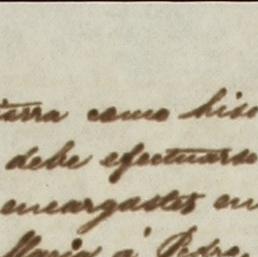 como
debe efectuarse
encargastes en
Maria á Pedro,